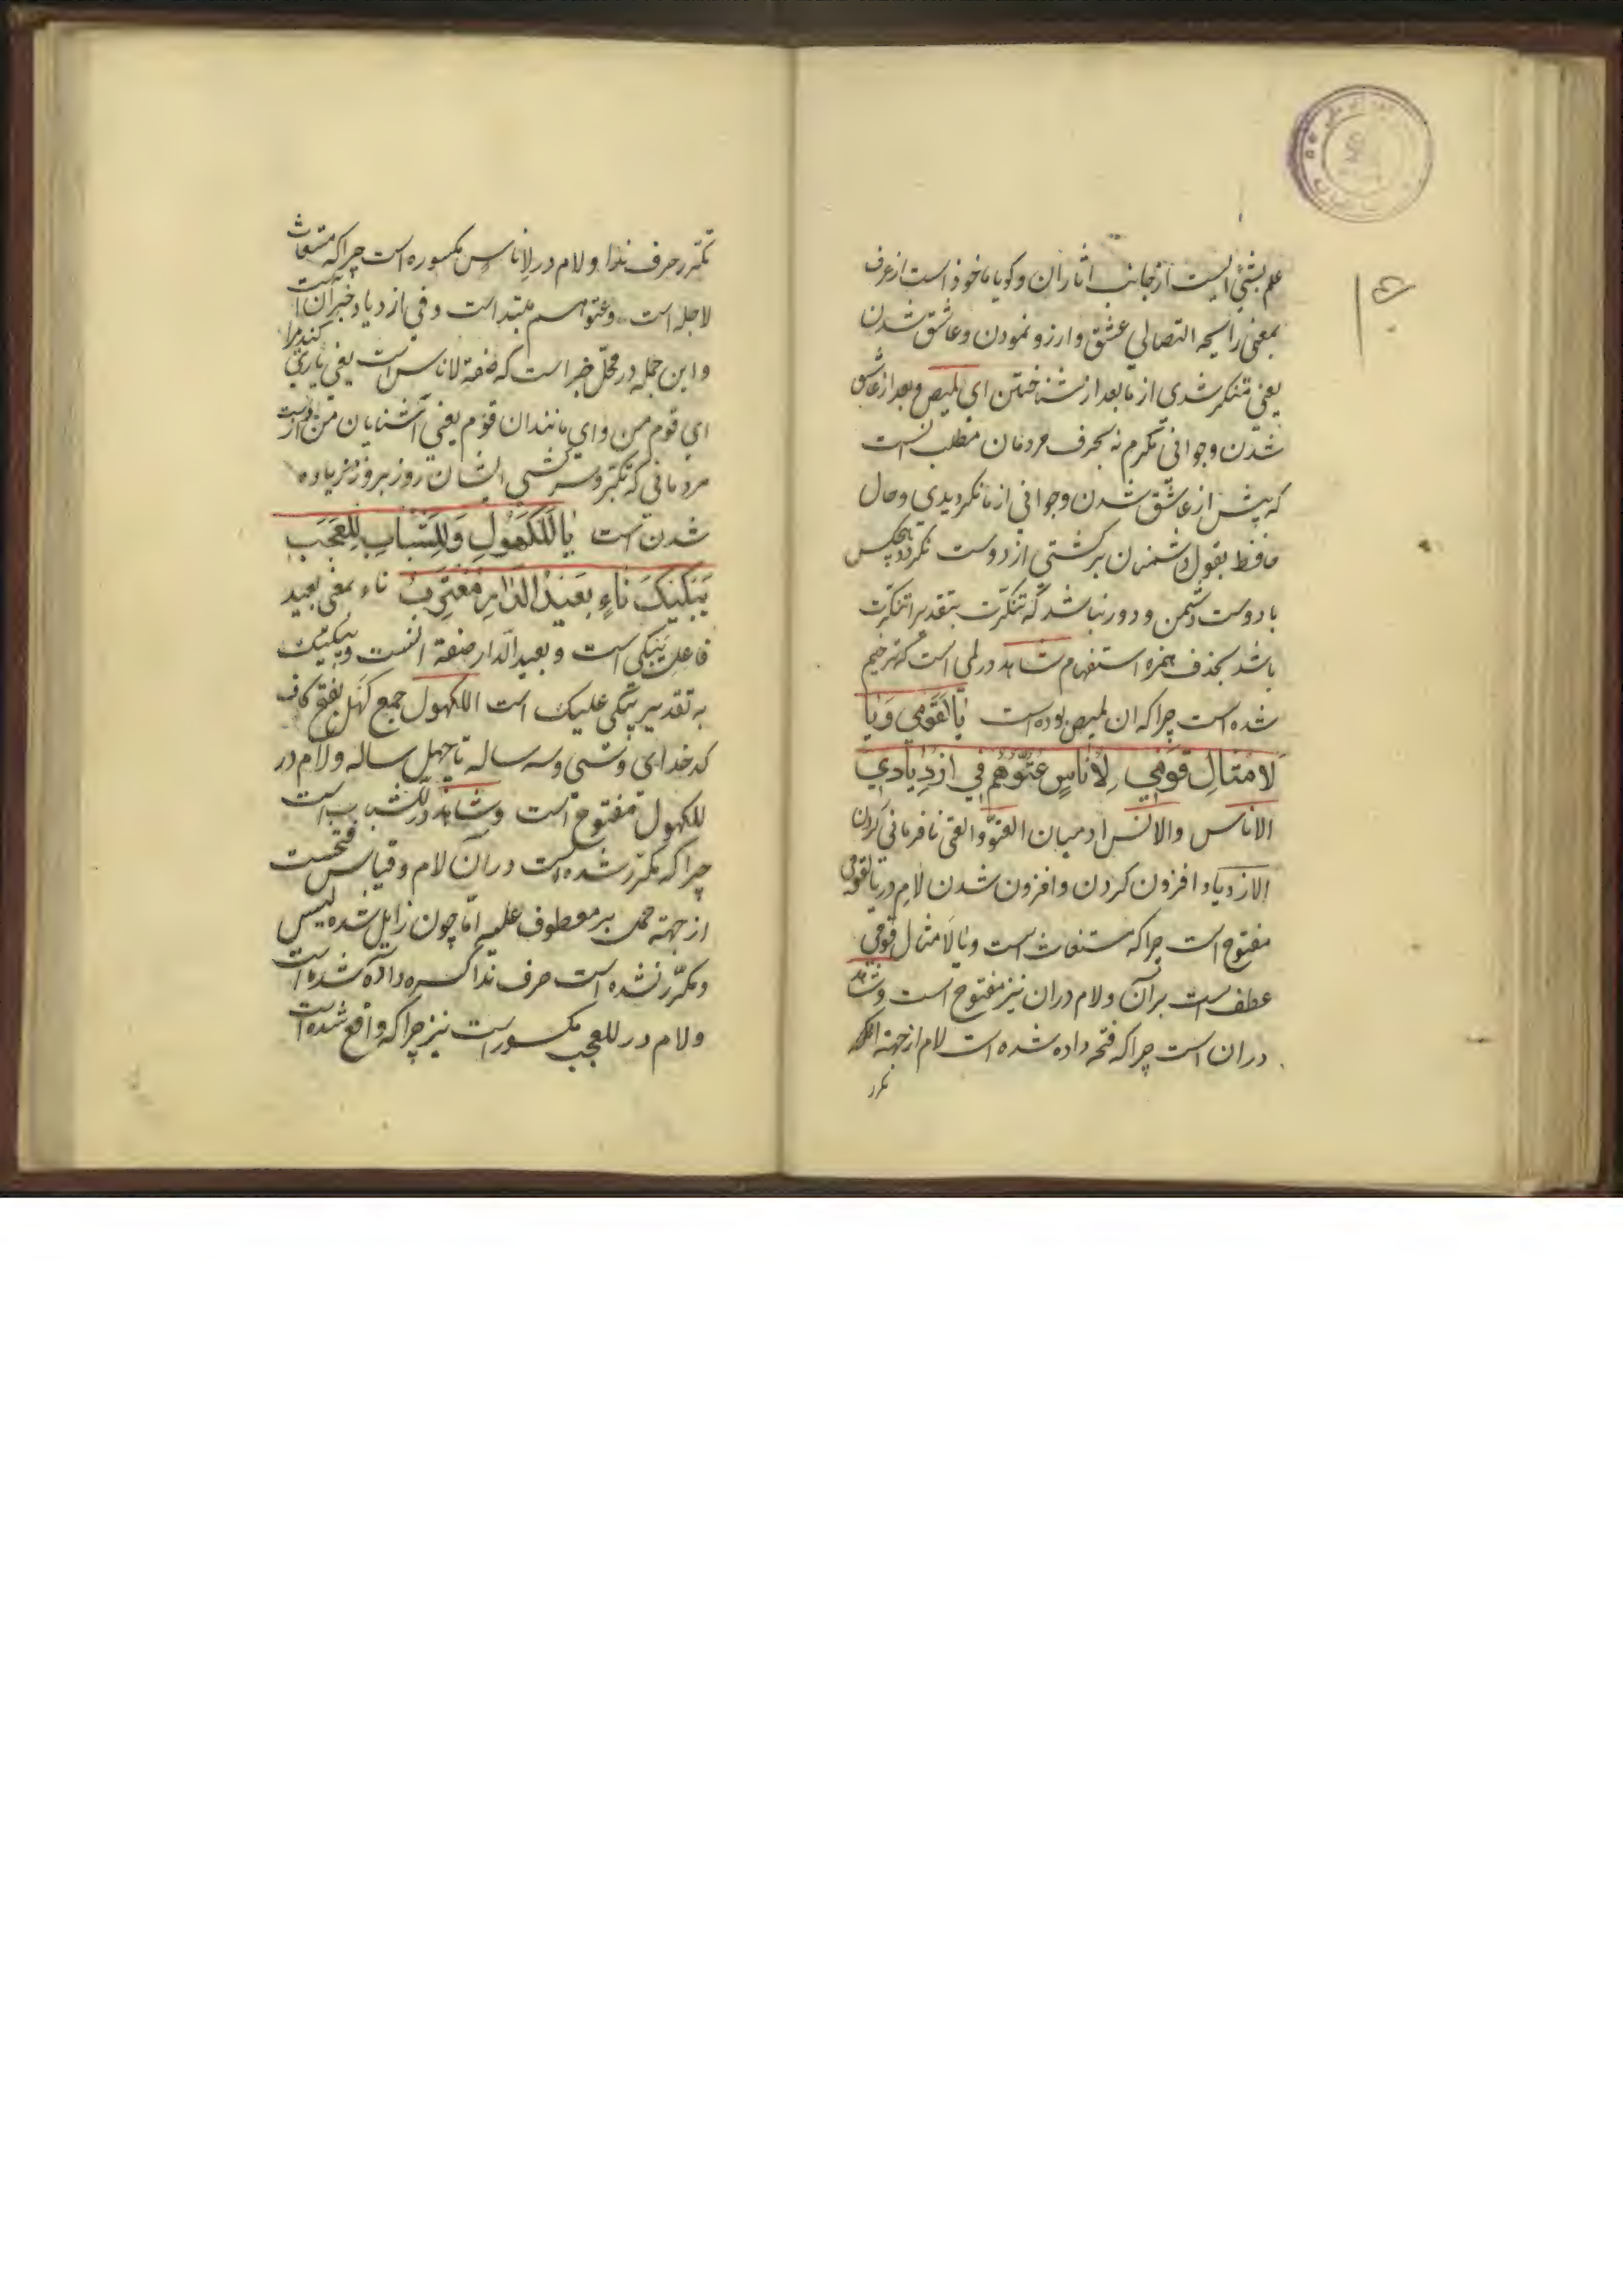 علم بشئ ایست از جانب اثار ان و کویا ماخوذ است از عرف
بمعنی رایحه التصابی عشق و ارزو نمودن و عاشق شدن
یعنی متنکر شدی از ما بعد از شناختن ای لمیص و بعد از عاشق
شدن و جوانی تکرم نه بحرف مردمان مطلب
که پیش از عاشق شدن و جوانی از ما نکردیدی و حال
بقول دشمنان برکشتی از دوست نکردد هیچکس
با دوست دشمن و دور نباشد که تنکرت بتقدیر اتنکرت
باشد بحذف همزه استفهام شاهد در لمی است که ترخیم
شده است چرا که ان لمیص بوده است یَا لَقَوْمِی وَیَا
لَاَمْثَالِ قَوْمِی لِاُنَاسٍ عُتُوُّهُمْ فِی ازْدِیَادِی
الاناس والانس ادمیان العتو والعتی نافرمانی کردن
الازدیاد افزون کردن و افزون شدن لام در یالقومی
مفتوح است چرا که مستغاث است و یا لامثال قومی
عطفست بران و لام دران نیز مفتوح است و شاهد
دران است چرا که فتحه داده شده است لام از جهة انکه
تکرر
تکرر حرف ندا و لام در لاناس مکسوره است چرا که مستغاث
لاجله است و عتوهم مبتدا است و فی ازدیاد خبر آن است
و این جمله در محل جر است که صفة لاناس است یعنی یاری کنید مرا
ای قوم من و ای مانندان قوم یعنی آشنایان من از دست
مردمانی که تکبر و سرکشی ایشان روز بروز زیاده
شدن است یَا لَلْکُهُولِ وَلِلشُّبَّابِ لِلْعَجَبِ
یَبْکِیکَ نَاءٍ بَعِیدُ الدَّارِ مُغْتَرِبٌ ناء بمعنی بعید
فاعل یبکی است و بعید الدار صفة انست و یبکیک
به تقدیر یبکی علیک است الکهول جمع کهل بفتح کاف
کدخدای و سی و سه ساله تا چهل ساله و لام در
للکهول مفتوح است و شاهد در للشباب است
چرا که مکرر شده است دران لام و قیاس فتحست
از جهة حمل بر معطوف علیه اما چون زایل شده لبس
و مکرر نشده است حرف ندا کسره داده شده است
و لام در للعجب مکسور است نیز چرا که واقع شده است